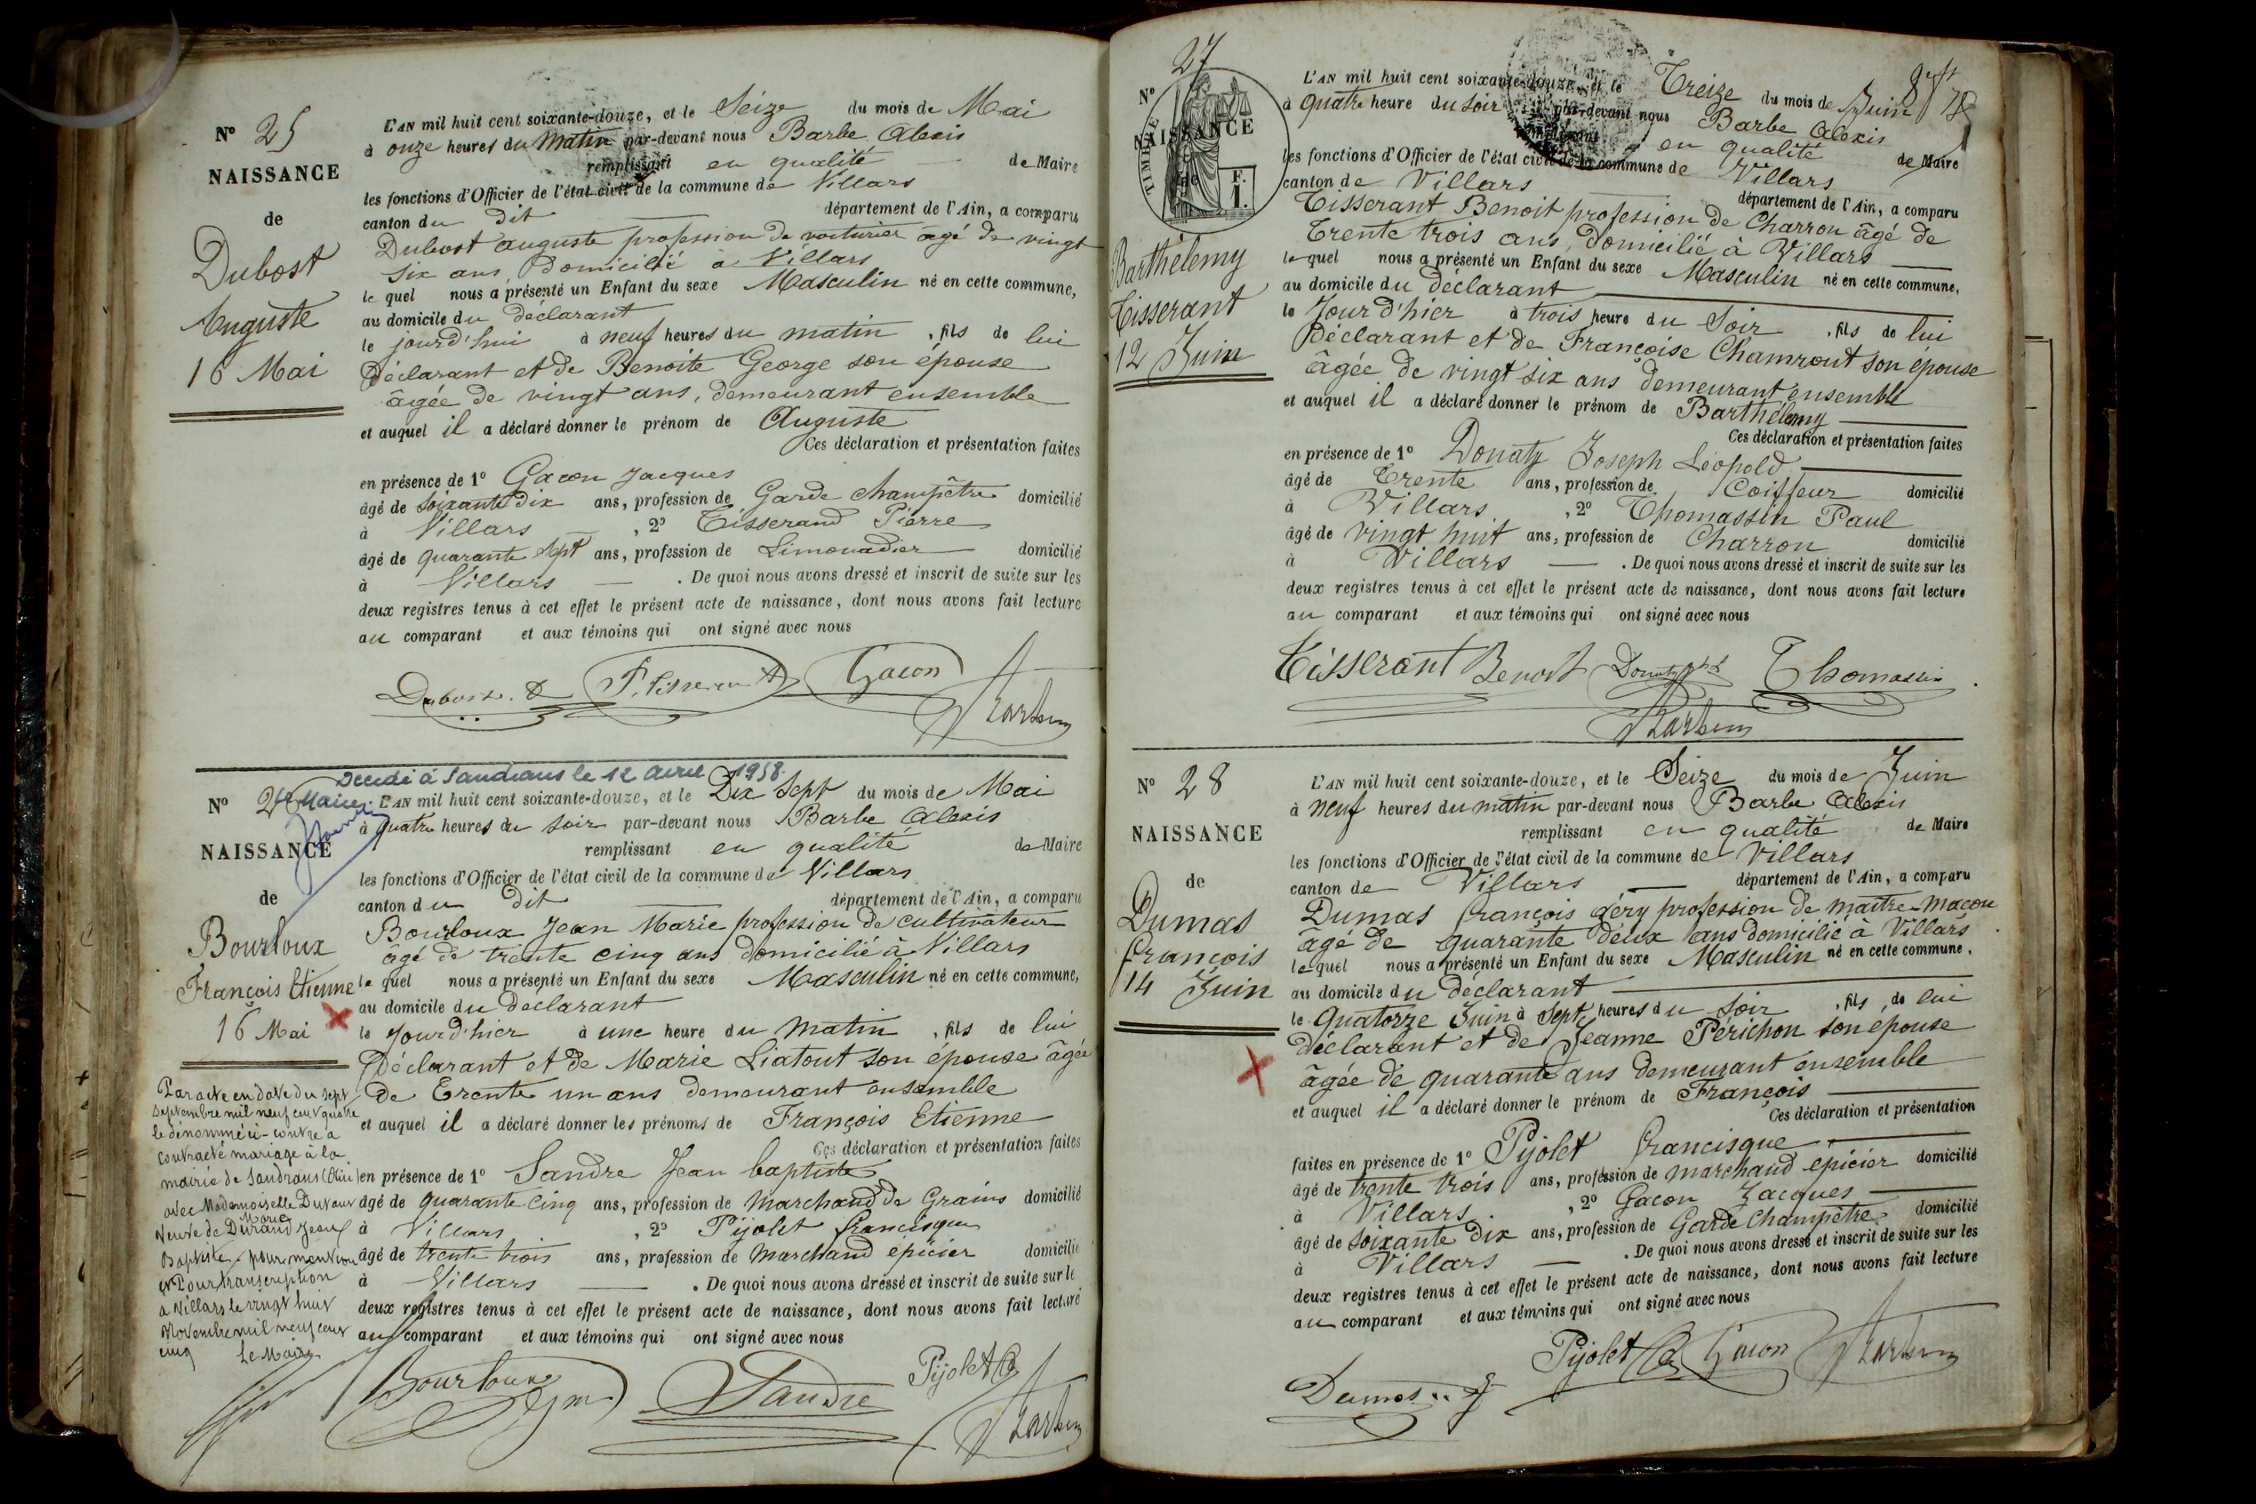 Nº 25
NAISSANCE
de
Dubost
Auguste
16 Mai
L'AN mil huit cent soixante-douze, et le Seize du mois de Mai
à onze heures du matin par-devant nous Barbe Alexis
remplissant en qualité de Maire
les fonctions d'Officier de l'état civil de la commune de Villars
canton du dit département de l'Ain, a comparu
Dubost Auguste profession de voiturier âgé de vingt
six ans, domicilié à Villars
lequel nous a présenté un Enfant du sexe Masculin né en cette commune,
au domicile du déclarant
le jourd'hui à neuf heures du matin, fils de lui
Déclarant et de Benoite George son épouse
âgée de vingt ans, demeurant ensemble
et auquel il a déclaré donner le prénom de Auguste
Ces déclaration et présentation faites
en présence de 1º Gacon Jacques
âgé de soixante dix ans, profession de Garde champêtre domicilié
à Villars, 2º Tisserand Pierre
âgé de quarante sept ans, profession de Limonadier domicilié
à Villars. De quoi nous avons dressé et inscrit de suite sur les
deux registres tenus à cet effet le présent acte de naissance, dont nous avons fait lecture
au comparant et aux témoins qui ont signé avec nous
Dubost Gacon
Décédé à Sandrans le 12 avril 1958
Le Maire
Nº
NAISSANCE
de
Bourloux
François Etienne
16 Mai
L'AN mil huit cent soixante-douze, et le Dix Sept du mois de Mai
à quatre heures du soir par-devant nous Barbe Alexis
remplissant en qualité de Maire
les fonctions d'Officier de l'état civil de la commune de Villars
canton du dit département de l'Ain, a comparu
Bourloux Jean Marie profession de cultivateur
âgé de trente cinq ans domicilié à Villars
lequel nous a présenté un Enfant du sexe Masculin né en cette commune,
au domicile du declarant
le Jourd'hier à une heure du matin, fils de lui
Déclarant et de Marie Liatout son épouse âgée
de Trente un ans demeurant ensemble
et auquel il a déclaré donner les prénoms de François Etienne
Ces déclaration et présentation faites
en présence de 1º Sandre Jean baptiste
âgé de quarante cinq ans, profession de Marchand de Grains domicilié
à Villars, 2º Pijolet francisque
âgé de trente trois ans, profession de Marchand épicier domicilié
à Villars. De quoi nous avons dressé et inscrit de suite sur le
deux registres tenus à cet effet le présent acte de naissance, dont nous avons fait lecture
au comparant et aux témoins qui ont signé avec nous
Par acte en date du sept
septembre mil neuf cent quatre
le dénommé ci-contre a
contracté mariage à la
mairie de Sandrans (Ain)
avec Mademoiselle
Marie
Veuve de Durand Jean
Baptiste, pour mention
et Pour transcription
à Villars le vingt huit
Novembre mil neuf cent
cinq Le Maire
Bourloux Sandre Pijolet
Nº 27
NAISSANCE
de
TIMBRE
F.
1.
Barthélemy
Tisserant
12 Juin
L'AN mil huit cent soixante-douze, et le Treize du mois de Juin
à quatre heure du soir par-devant nous Barbe Alexis
remplissant en qualité de Maire
les fonctions d'Officier de l'état civil de la commune de Villars
canton de Villars département de l'Ain, a comparu
Tisserant Benoit profession de Charron âgé de
Trente trois ans, domicilié à Villars
lequel nous a présenté un Enfant du sexe Masculin né en cette commune,
au domicile du déclarant
le Jourd'hier à trois heure du Soir, fils de lui
Déclarant et de Françoise Chamrout son épouse
âgée de vingt six ans demeurant ensemble
et auquel il a déclaré donner le prénom de Barthélemy
Ces déclaration et présentation faites
en présence de 1º Donaty Joseph Léopold
âgé de Trente ans, profession de Coiffeur domicilié
à Villars, 2º Thomassin Paul
âgé de vingt huit ans, profession de Charron domicilié
à Villars. De quoi nous avons dressé et inscrit de suite sur les
deux registres tenus à cet effet le présent acte de naissance, dont nous avons fait lecture
au comparant et aux témoins qui ont signé avec nous
Tisserant Benoit Thomassin
Nº 28
NAISSANCE
de
Dumas
françois
14 Juin
L'AN mil huit cent soixante-douze, et le Seize du mois de Juin
à neuf heures du matin par-devant nous Barbe Alexis
remplissant en qualité de Maire
les fonctions d'Officier de l'état civil de la commune de Villars
canton de Villars département de l'Ain, a comparu
Dumas françois déry profession de maître-maçon
âgé de quarante deux ans domicilié à Villars
lequel nous a présenté un Enfant du sexe Masculin né en cette commune,
au domicile du déclarant
le Quatorze Juin à Sept heures du Soir, fils de lui
déclarant et de Jeanne Perichon son épouse
âgée de quarante ans demeurant ensemble
et auquel il a déclaré donner le prénom de François
Ces déclaration et présentation
faites en présence de 1º Pijolet francisque
âgé de trente trois ans, profession de marchand épicier domicilié
à Villars, 2º Gacon Jacques
âgé de soixante dix ans, profession de Garde Champêtre domicilié
à Villars. De quoi nous avons dressé et inscrit de suite sur les
deux registres tenus à cet effet le présent acte de naissance, dont nous avons fait lecture
au comparant et aux témoins qui ont signé avec nous
Pijolet Gacon
Dumas